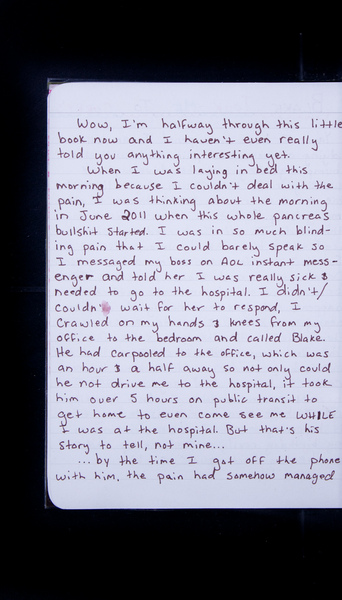 Wow, I'm halfway through this little
book now and I haven't even really
told you anything interesting yet.
When I was laying in bed this
morning because I couldn't deal with the
pain, I was thinking about the morning
in June 2011 when this whole pancreas
bullshit started. I was in so much blind-
ing pain that I could barely speak so
I messaged my boss on AOL instant mess-
enger and told her I was really sick &
needed to go to the hospital. I didn't/
couldn't wait for her to respond, I
crawled on my hands & knees from my
office to the bedroom and called Blake.
He had carpooled to the office, which was
an hour & a half away so not only could
he not drive me to the hospital, it took
him over 5 hours on public transit to
get home to even come see me WHILE
I was at the hospital. But that's his
story to tell, not mine...
...by the time I got off the phone
with him, the pain had somehow managed